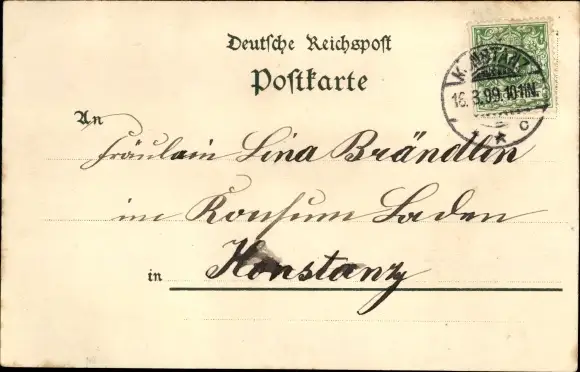 Deutsche Reichspost
Postkarte
KONSTANZ
16.3.99.10-11N.
* c
An
Fräulein Lina Brändlin
im Konsum Laden
in Konstanz